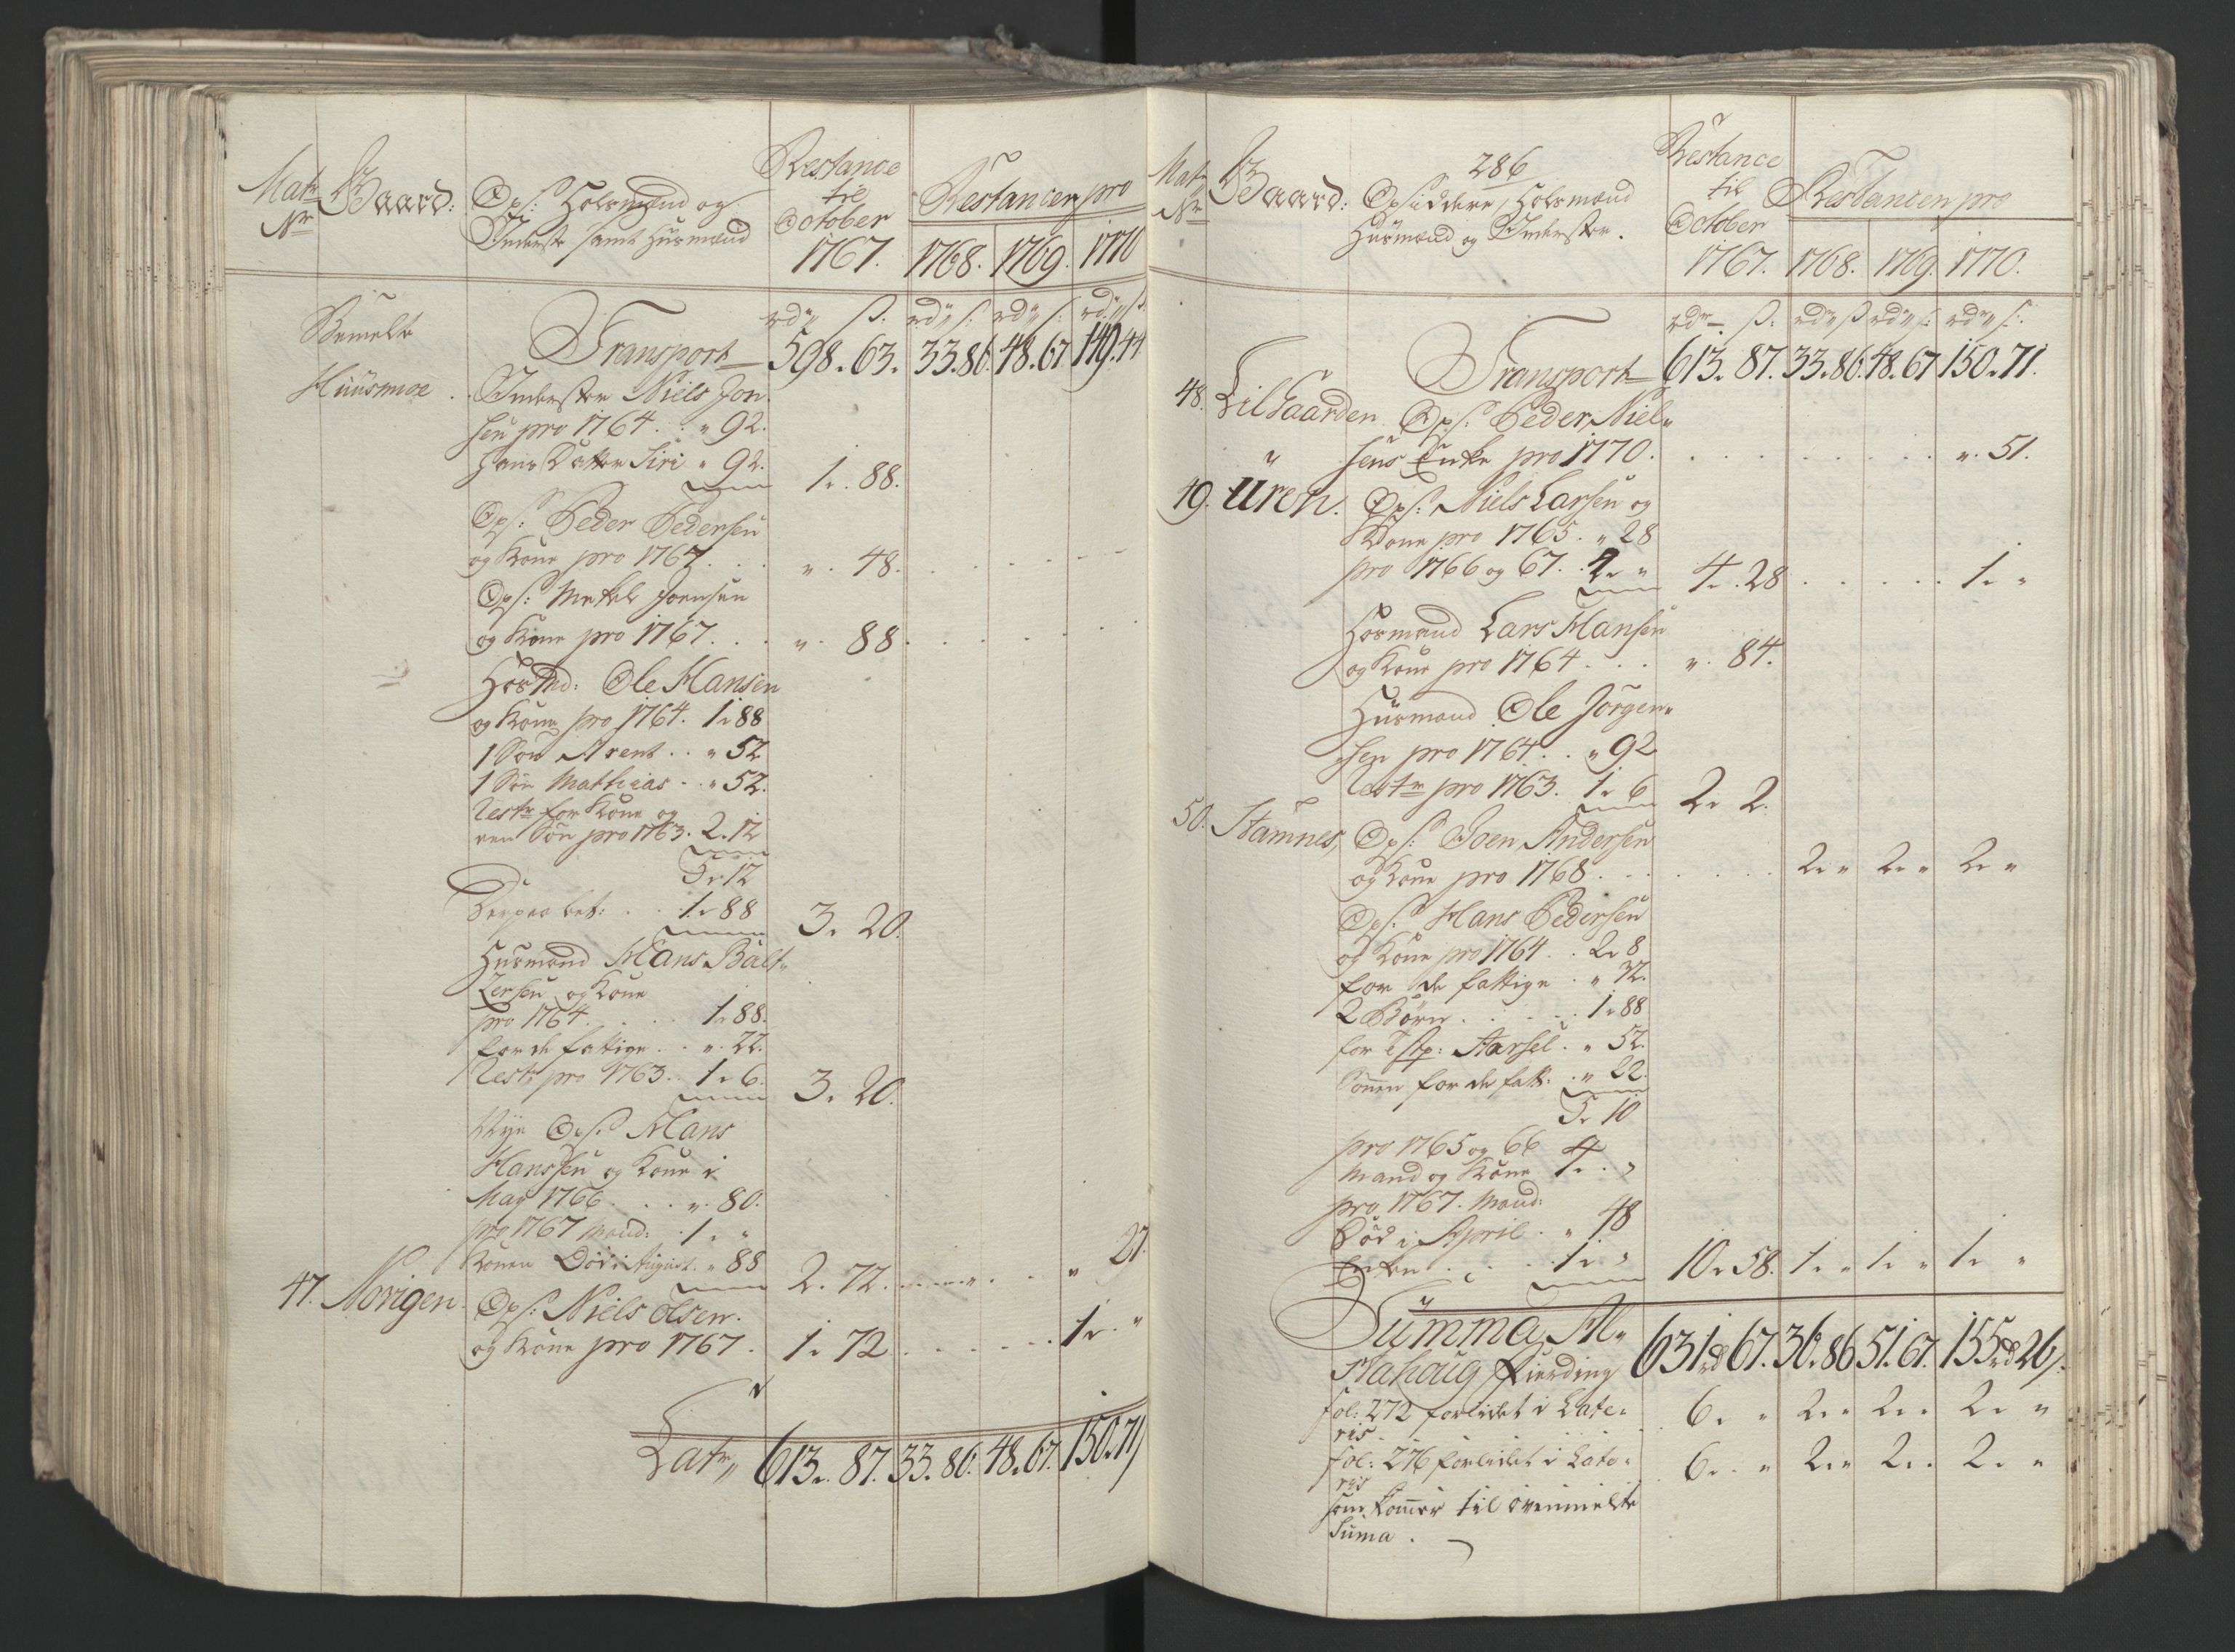 Matr Nr
Gaard:
Ops: Holsmænd og
Inderster samt Huusmænd
Restance
til
October
1767.
Restancen pro
1768. 1769. 1770
rd" ß: rd" ß: rd" ß: rd" ß:
Bemelte
Huusmoe
Transport 598. 63. 33.86. 48.67. 149.44
Inderster Niels Jon-
sen pro 1764. . " 92.
Hans Datter Siri " 92. 1. 88.
Ops: Peder Pedersen
og Kone pro 1767. . . ". 48.
Ops: Mekel Joensen
og Kone pro 1767. . . ". 88.
Hosmd: Ole Hansen
og Kone pro 1764. 1" 88
1 Søn Arent . . " 52
1 Søn Mathias . . " 52.
Restr for Kone og
een Søn pro 1763. 2. 12
5" 12
Derpaa bet: . . 1" 88 3. 20.
Husmand Hans Balt-
zersen og Kone
pro 1764. . . . 1" 88.
for de fattige . . ". 22.
Rest: pro 1763. . 1" 6. 3. 20.
Nye Ops: Hans
Hanssen og Kone i
May 1766. . . ". 80.
pro 1767 Mand: 1" "
Konen Død i August. " 88 2. 72. " 27.
47. Norigen. Ops: Niels Olsen.
og Kone pro 1767. 1" 72 1" "
Latr" 613. 87. 33. 86. 48. 67. 150. 71
Matr Nr
Gaard:
286
Opsiddere, Holsmænd
Huusmænd og Inderster.
Restance
til
October
1767.
Restancen pro
1768. 1769. 1770.
rdr ß: rd" ß rd" ß: rd" ß:
Transport 613. 87. 33.86. 48.67 150. 71.
48. LilGaarden Ops: Peder Niel-
sens Enke pro 1770. ". 51.
49. Uren. Ops: Niels Larsen og
Kone pro 1765. " 28
pro 1766 og 67. 4" " 4. 28 1" "
Hosmand Lars Hansen
og Kone pro 1764 . . . ". 84.
Husmand Ole Jørgen-
sen pro 1764. . " 92
Restr pro 1763. 1" 6 2" 2.
50. Stamnes, Ops: Joen Andersen
og Kone pro 1768. 2" " 2" " 2" "
Ops: Hans Pedersen
og Kone pro 1764 . . 2" 8
for de fattige . " 32.
2 Børn . . . . 1" 88
for Tstp: Aarsel. " 52.
Sønnen for de fatt: . " 22.
5" 10
pro 1765 og 66
Mand og Kone 4" "
pro 1767. Mand:
Død i April . " 48
Enken . . . . 1" " 10" 58. 1" " 1" " 1" "
Summa Al-
stahoug Fierding 631 rd 67. 36. 86 51. 67. 155 rd 26ß.
fol: 272 forlidet i Late-
ris 6. " 2" " 2" " 2" "
fol: 276 forlidet i Late-
ris 6. " 2" " 2" " 2" "
som kommer til ovenmelte
Suma.